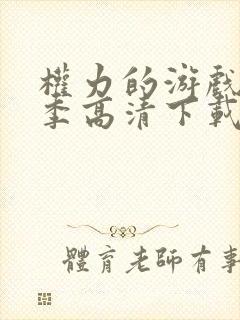 權力的游戲
季高清下載
體育老師有事